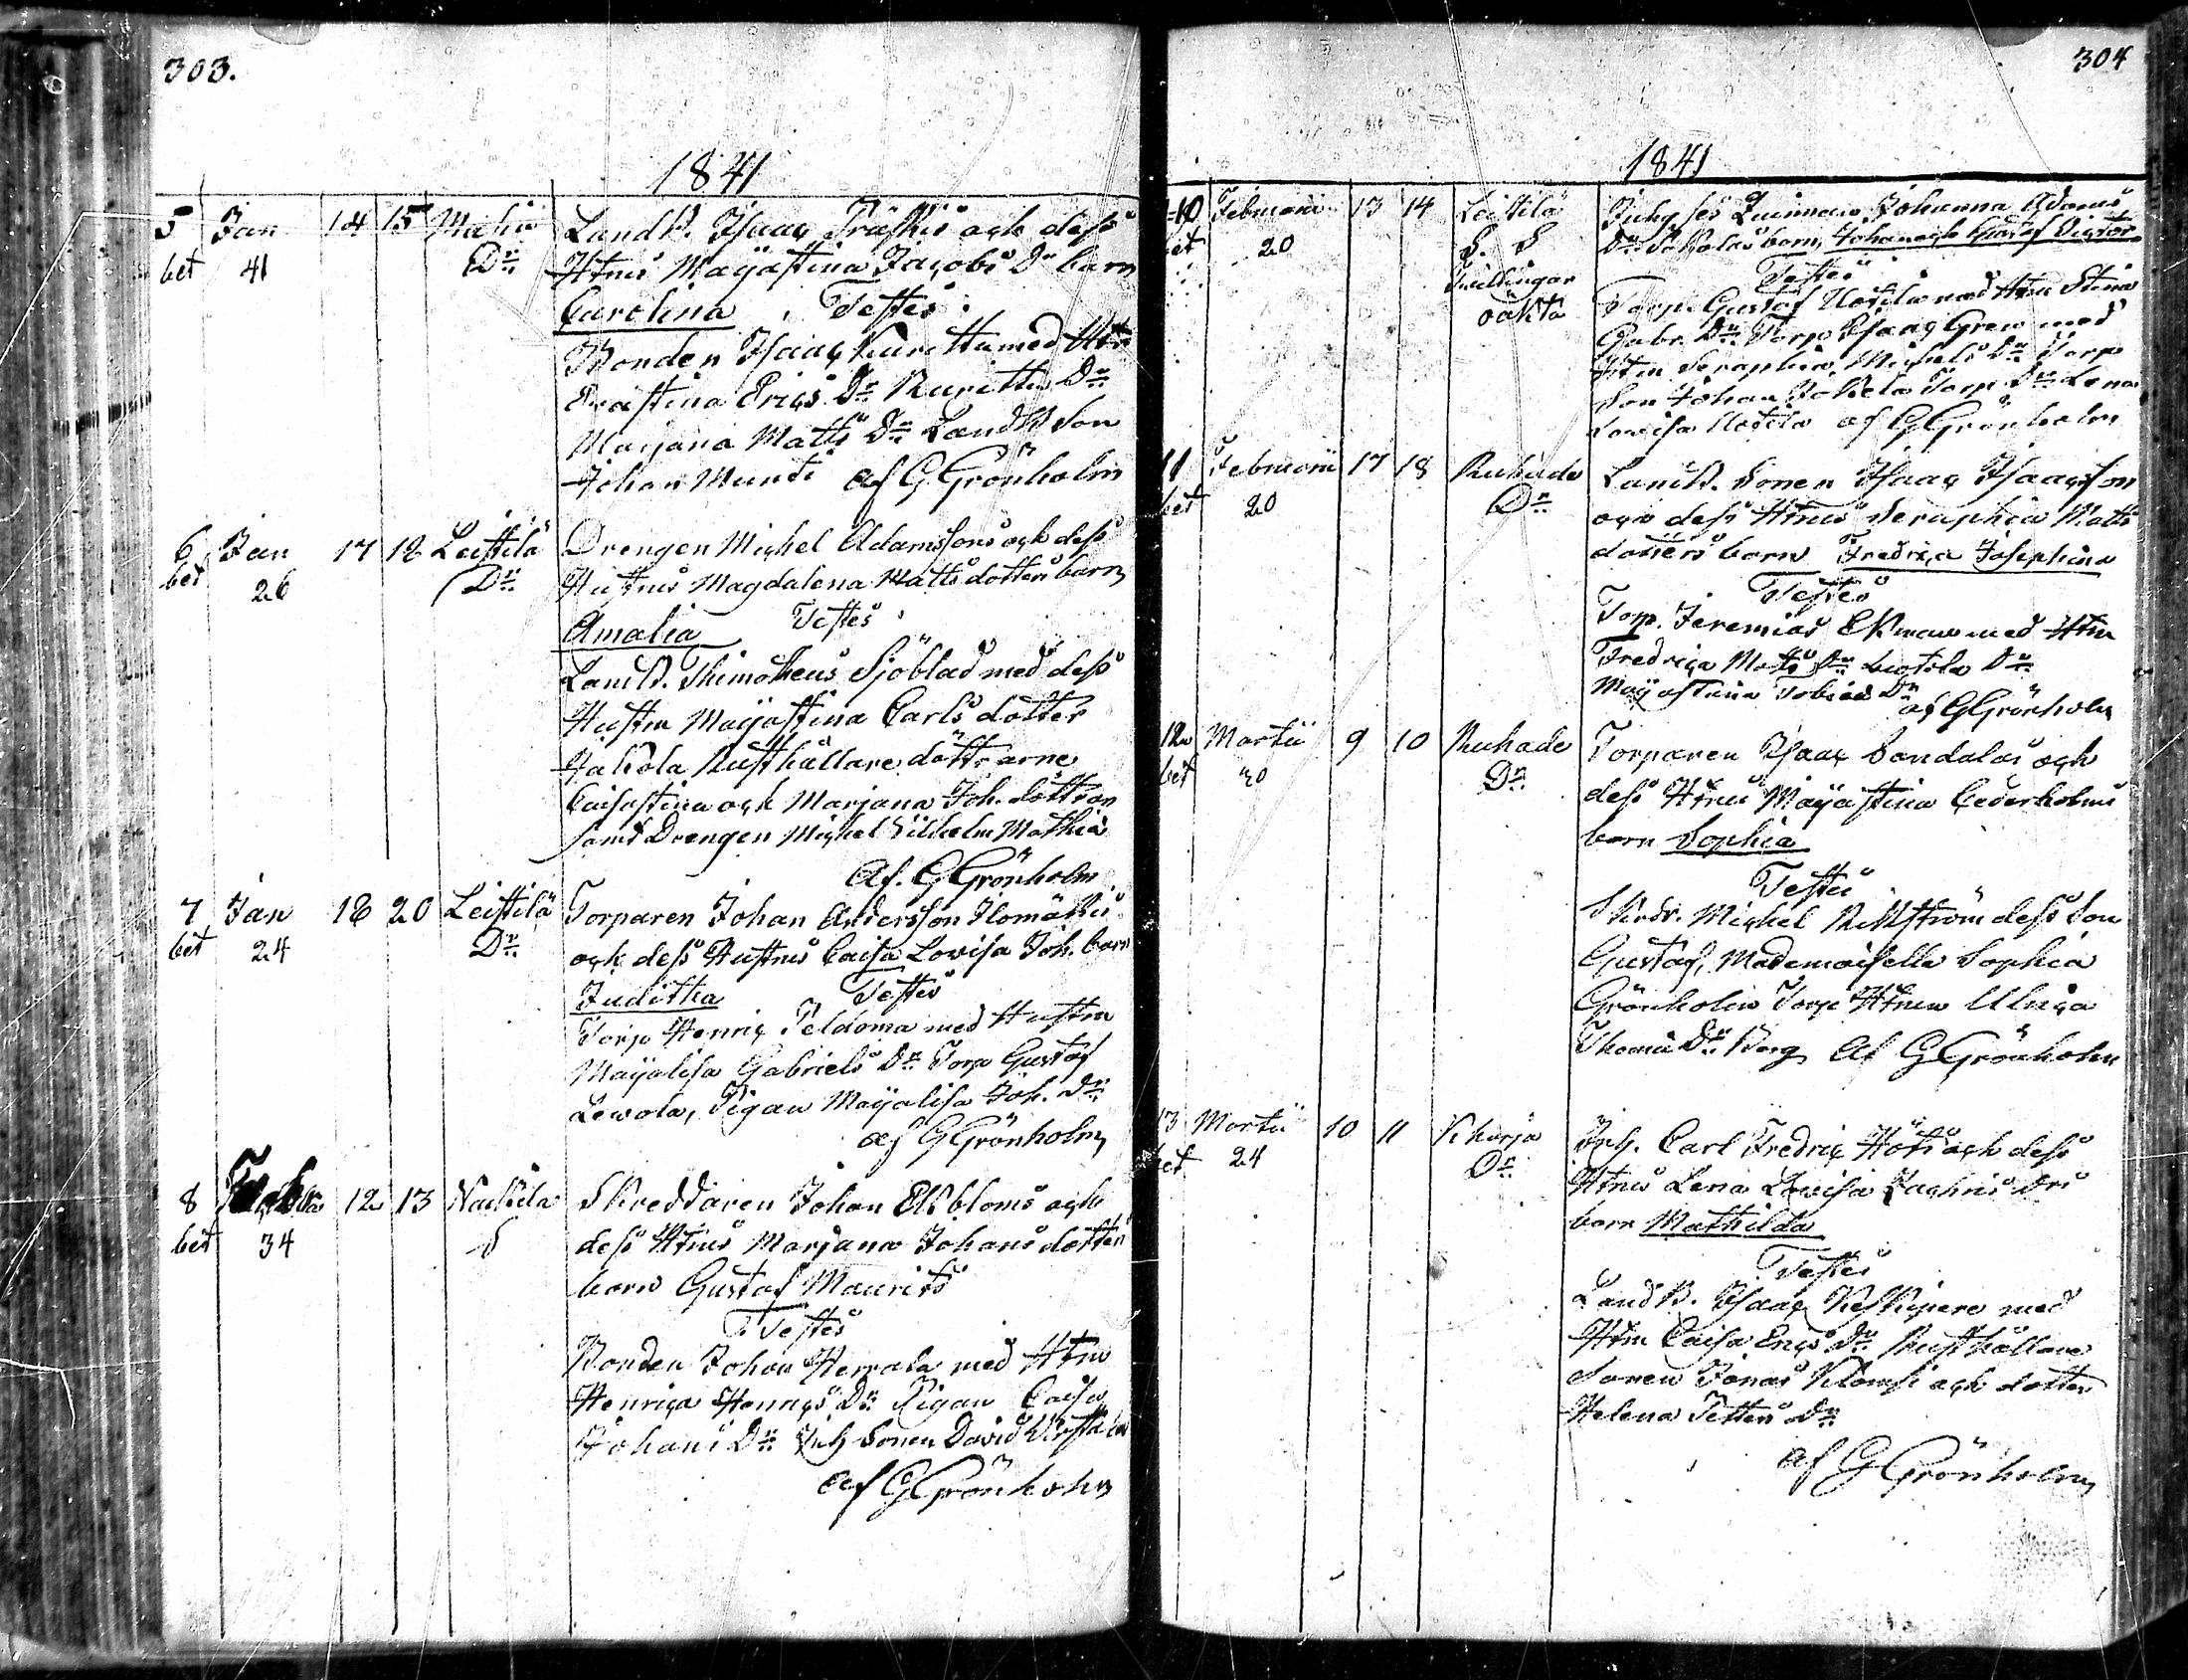 303.
1841
5 Jan 14 15 Mahis Landb. Isaac Träskis och dess
bet 41 Dr. Htrus Majastina Jacobs Dr barn
Carolina Testes
Bonden Isaac Kuritta med Htr
Evastina Erics Dr. Kuritta Dr.
Marjana Matts Dr. Landb. Son
Johan Munti af G Grönholm
6 Jan 17 18 Leistilä Drengen Michel Adamssons och dess
bet 26 Dr. Hustrus Magdalena Matts dotters barn
Amalia Testes
Landb. Thimotheus Sjöblad med dess
Hustru Majastina Carls dotter
Jakola Rusthållare döttrarne
Caisastina och Marjana Joh. döttrar
samt Drengen Michel Vilhelm Mathia
Af. G Grönholm
7 Jan 18 20 Leistilä Torparen Johan Andersson Ilomäkis
bet 24 Dr. och dess Hustrus Caisa Lovisa Joh. barn
Juditha Testes
Torp Henric Peldoma med Hustru
Majalisa Gabriels Dr. Torp Gustaf
Lewola, Pigan Majalisa Joh. Dr.
af G Grönholm
8 12 13 Nackila Skreddaren Johan Ekbloms och
bet 34 S dess Htrus Marjana Johans dotters
barn Gustaf Maurits
Testes
Bonden Johan Herrala med Htru
Henrica Henrics Dr. Pigan Caisa
Johans Dr. Inh Sonen David
af G Grönholm
304
1841
10 Februari 13 14 Leistilä Inhyses Quinnan Johanna Adams
bet 20 S. S Dr. barn, Johan och Gustaf Victor
Tvillingar Testes
oäkta Torp. Gustaf Uotila med Htru Stina
Gabr. Dr. Torp Isaac Gren med
Htru Seraphia Michels Dr. Torp
Son Johan Jokela Torp Dr. Lena
Lovisa Uotila af G Grönholm
11 Februari 17 18 Ruhade Landb. Sonen Isaac Isaacsson
bet 20 Dr. och dess Htrus Seraphia Matts
dotters barn Fredrica Josephina
Testes
Torp. Jeremias Ekman med Htru
Fredrica Matts Dr. Dr.
Majastina Tobias Dr.
af G Grönholm
12 Martii 9 10 Ruhade Torparen Isaac Sandalas och
bet 20 Dr. dess Htrus Majastina Cederholms
barn Sophia
Testes
Skrdr. Michel Rikström dess Son
Gustaf, Mademoiselle Sophia
Grönholm Torp Htrun Ulrica
Thomä Dr. Berg Af G Grönholm
13 Martii 10 11 Kharja Inh. Carl Fredric Höörs och dess
bet 24 Dr. Htrus Lena Lovisa Zachris Drs
barn Mathilda
Testes
Landb. Isaac Keskipere med
Htru Caisa Erics Dr. Rusthållare
Sonen Jonas Klomsi och dotter
Helena Petters Dr.
af G Grönholm